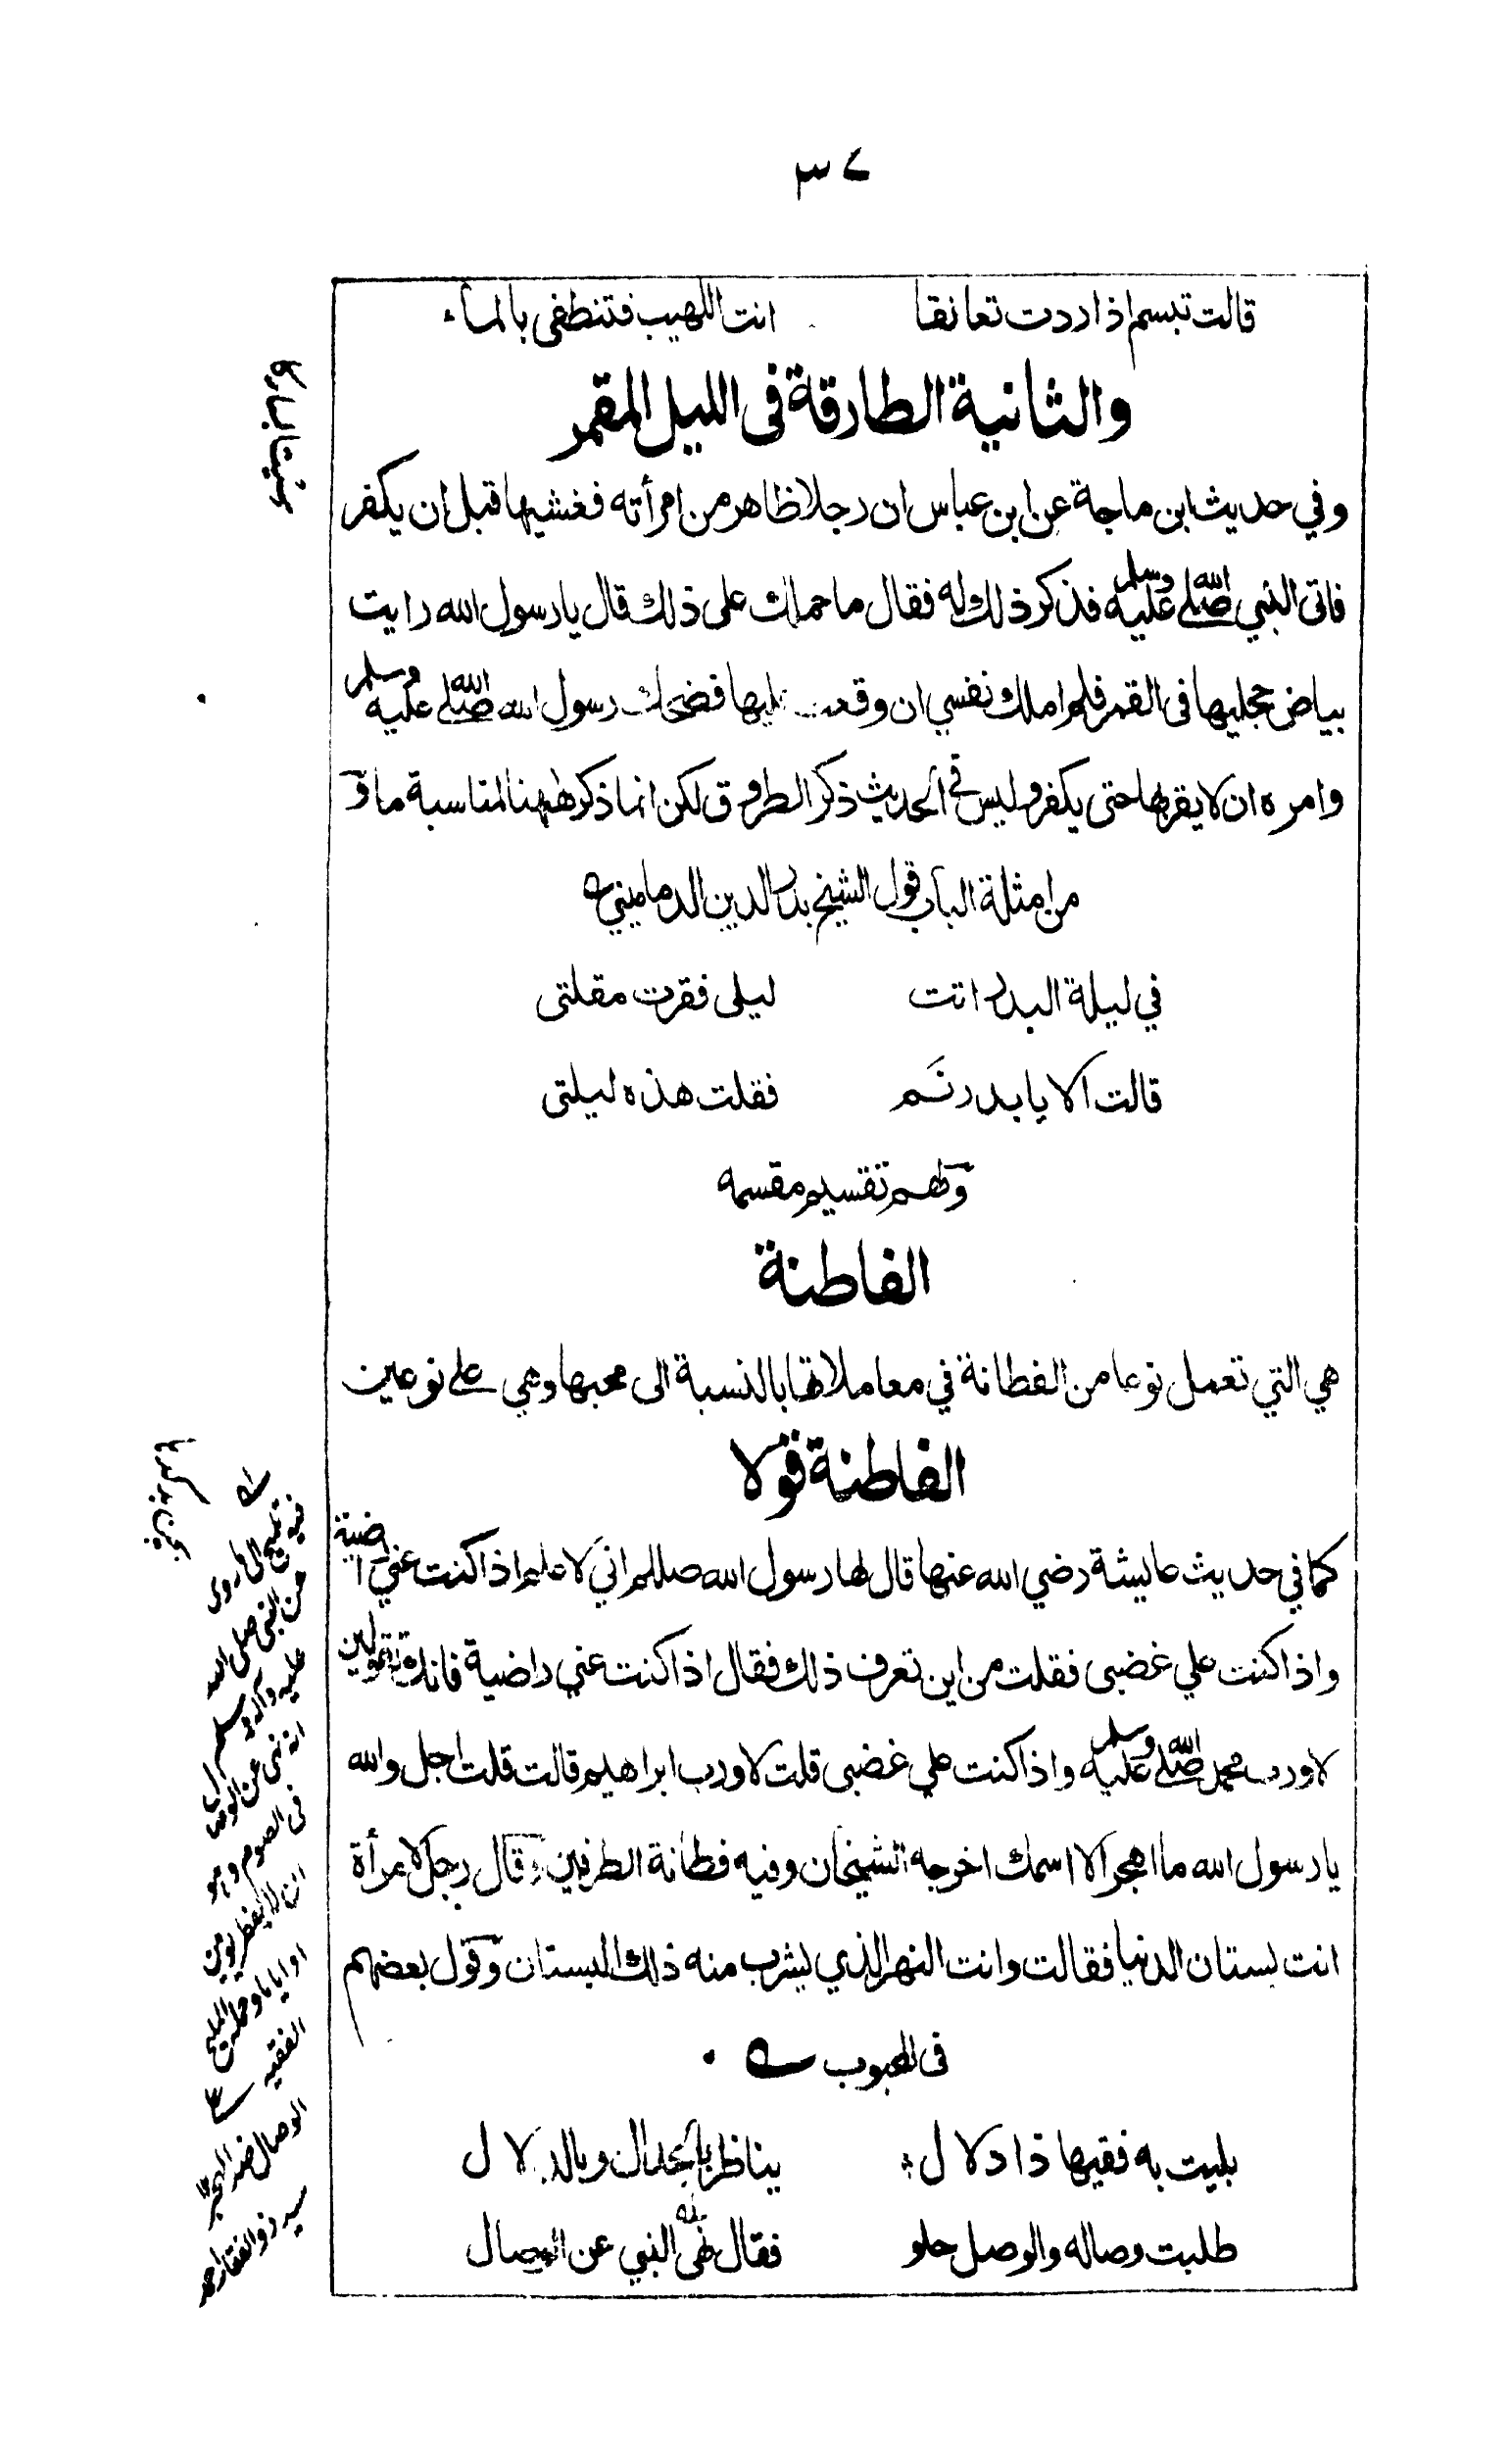 ٣٧
قالت تبسم اذا ردت تعانقا انت اللهيب فتنطفى بالماء
والثانية الطارقة فى الليل المقمر
وفي حديث ابن ماجة عن ابن عباس ان رجلا ظاهر من امرأته فغشيها قبل ان يكفر
فاتى النبي صلى الله عليه وسلم فذكر ذلك له فقال ما حملك على ذلك قال يا رسول الله رايت
بياض حجليها فى القمر فلم املك نفسي ان وقعت عليها فضحك رسول الله صلى الله عليه وسلم
وامره ان لا يقربها حتى يكفر وليس في الحديث ذكر الطروق لكن انما ذكر ههنا لمناسبة ما و
من امثلة الباب قول الشيخ بدر الدين الدماميني
في ليلة البدر اتت ليلى فقرت مقلتى
قالت الا يا بدر نم فقلت هذه ليلتى
تقسيم مقسمه
الفاطنة
هي التي تعمل نوعا من الفطانة في معاملاتها بالنسبة الى محبها وهي على نوعين
الفاطنة قولا
كما في حديث عايشة رضي الله عنها قال لها رسول الله صللم اني لاعلم اذا كنت عني راضية
واذا كنت علي غضبى فقلت من اين تعرف ذلك فقال اذا كنت عني راضية فانك تقولين
لا ورب محمد صلى الله عليه وسلم واذا كنت علي غضبى قلت لا ورب ابراهيم قالت قلت اجل والله
يا رسول الله ما اهجر الا اسمك اخرجه الشيخان وفيه فطانة الطرفين وقال رجل لامرأة
انت بستان الدنيا فقالت وانت النهر الذي يشرب منه ذلك البستان وقول بعضهم
فى المحبوب
بليت به فقيها ذا دلال يناظر بالجدال وبالدلال
طلبت وصاله والوصل حلو فقال نهى النبي عن الوصال
فيه تلميح الى ما روى
عن النبي صلى الله
عليه وآله وسلم
انه نهى عن الوصال
فى الصوم وهو
ان لا يفطر يومين
او اياما
الفقيه
الوصال ضد الهجر
سيد ذو الفقار احمد